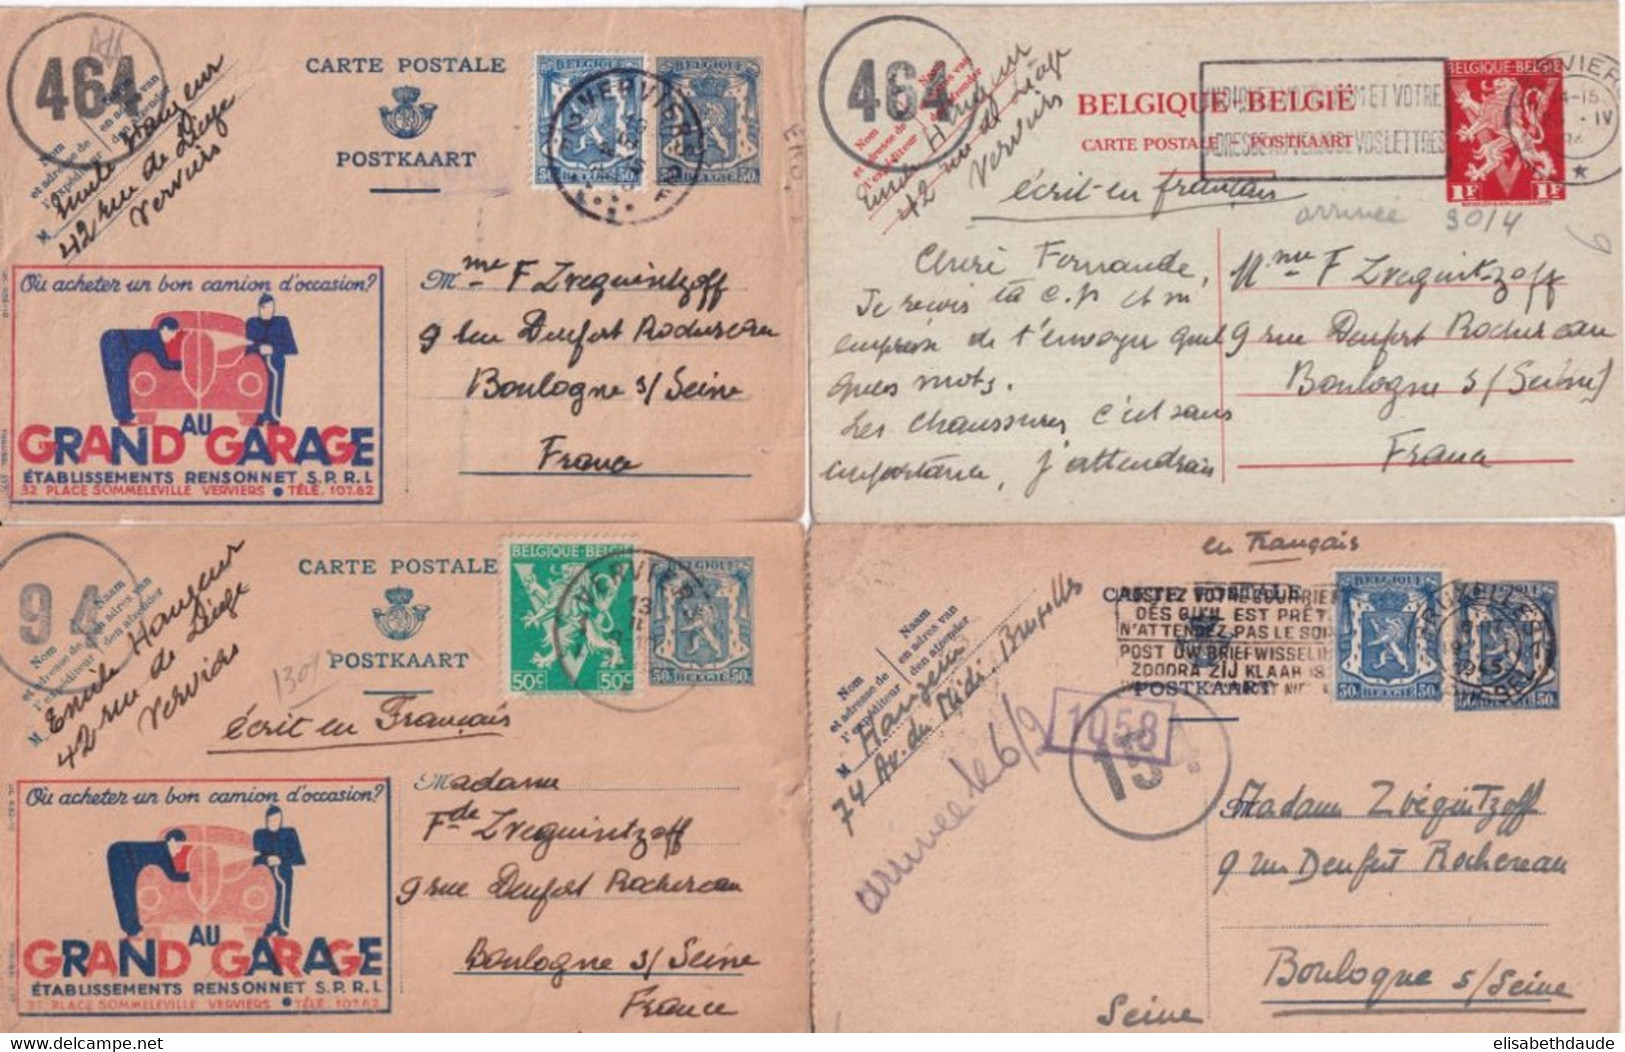 464
CARTE POSTALE
POSTKAART
Nom
et adresse de
l'expéditeur
Naam
en adres van
den afzender
M
42 rue de Liège
Verviers
BELGIQUE BELGIE
50
50
Où acheter un bon camion d'occasion?
AU
GRAND GARAGE
ÉTABLISSEMENTS RENSONNET S.P.R.L
32 PLACE SOMMELEVILLE VERVIERS • TÉLÉ. 107.62
Mme F Zveguintzoff
9 rue Denfert Rochereau
Boulogne s/ Seine
France
464
Nom
et adresse de
l'expéditeur
Naam
42 rue de Liège
Verviers
BELGIQUE BELGIË
CARTE POSTALE POSTKAART
BELGIQUE-BELGIE
1F 1F
écrit en français
arrivée 30/4
Chère Fernande,
Je reçois ta c.p et m'
empresse de t'envoyer quel
ques mots.
Les chaussures c'est sans
importance, j'attendrais
Mme F Zveguintzoff
9 rue Denfert Rochereau
Boulogne s/ (Seine)
France
94
CARTE POSTALE
POSTKAART
Nom
et adresse de
l'expéditeur
Naam
en adres van
den afzender
M
Emile Hanzeur
42 rue de Liège
Verviers
BELGIQUE-BELGIE
50c 50c
BELGIQUE
50 BELGIE 50
VERVIERS
écrit en Français
Où acheter un bon camion d'occasion?
AU
GRAND GARAGE
ÉTABLISSEMENTS RENSONNET S.P.R.L
32 PLACE SOMMELEVILLE VERVIERS • TÉLÉ. 107.62
Madame
F de Zveguintzoff
9 rue Denfert Rochereau
Boulogne s/ Seine
France
en Français
Nom
et adresse de
l'expéditeur
Naam
en adres van
den afzender
M
Hanzeur
74 Av. du Midi. Bruxelles
POSTEZ VOTRE COURRIER
DÈS QU'IL EST PRÊT.
N'ATTENDEZ PAS LE SOIR
POST UW BRIEFWISSELING
ZOODRA ZIJ KLAAR IS
POSTKAART
BELGIQUE
50 BELGIE 50
1945
1058
arrivée le 6/2
Madame Zvéguintzoff
9 rue Denfert Rochereau
Boulogne s/Seine
Seine
elisabethdaude